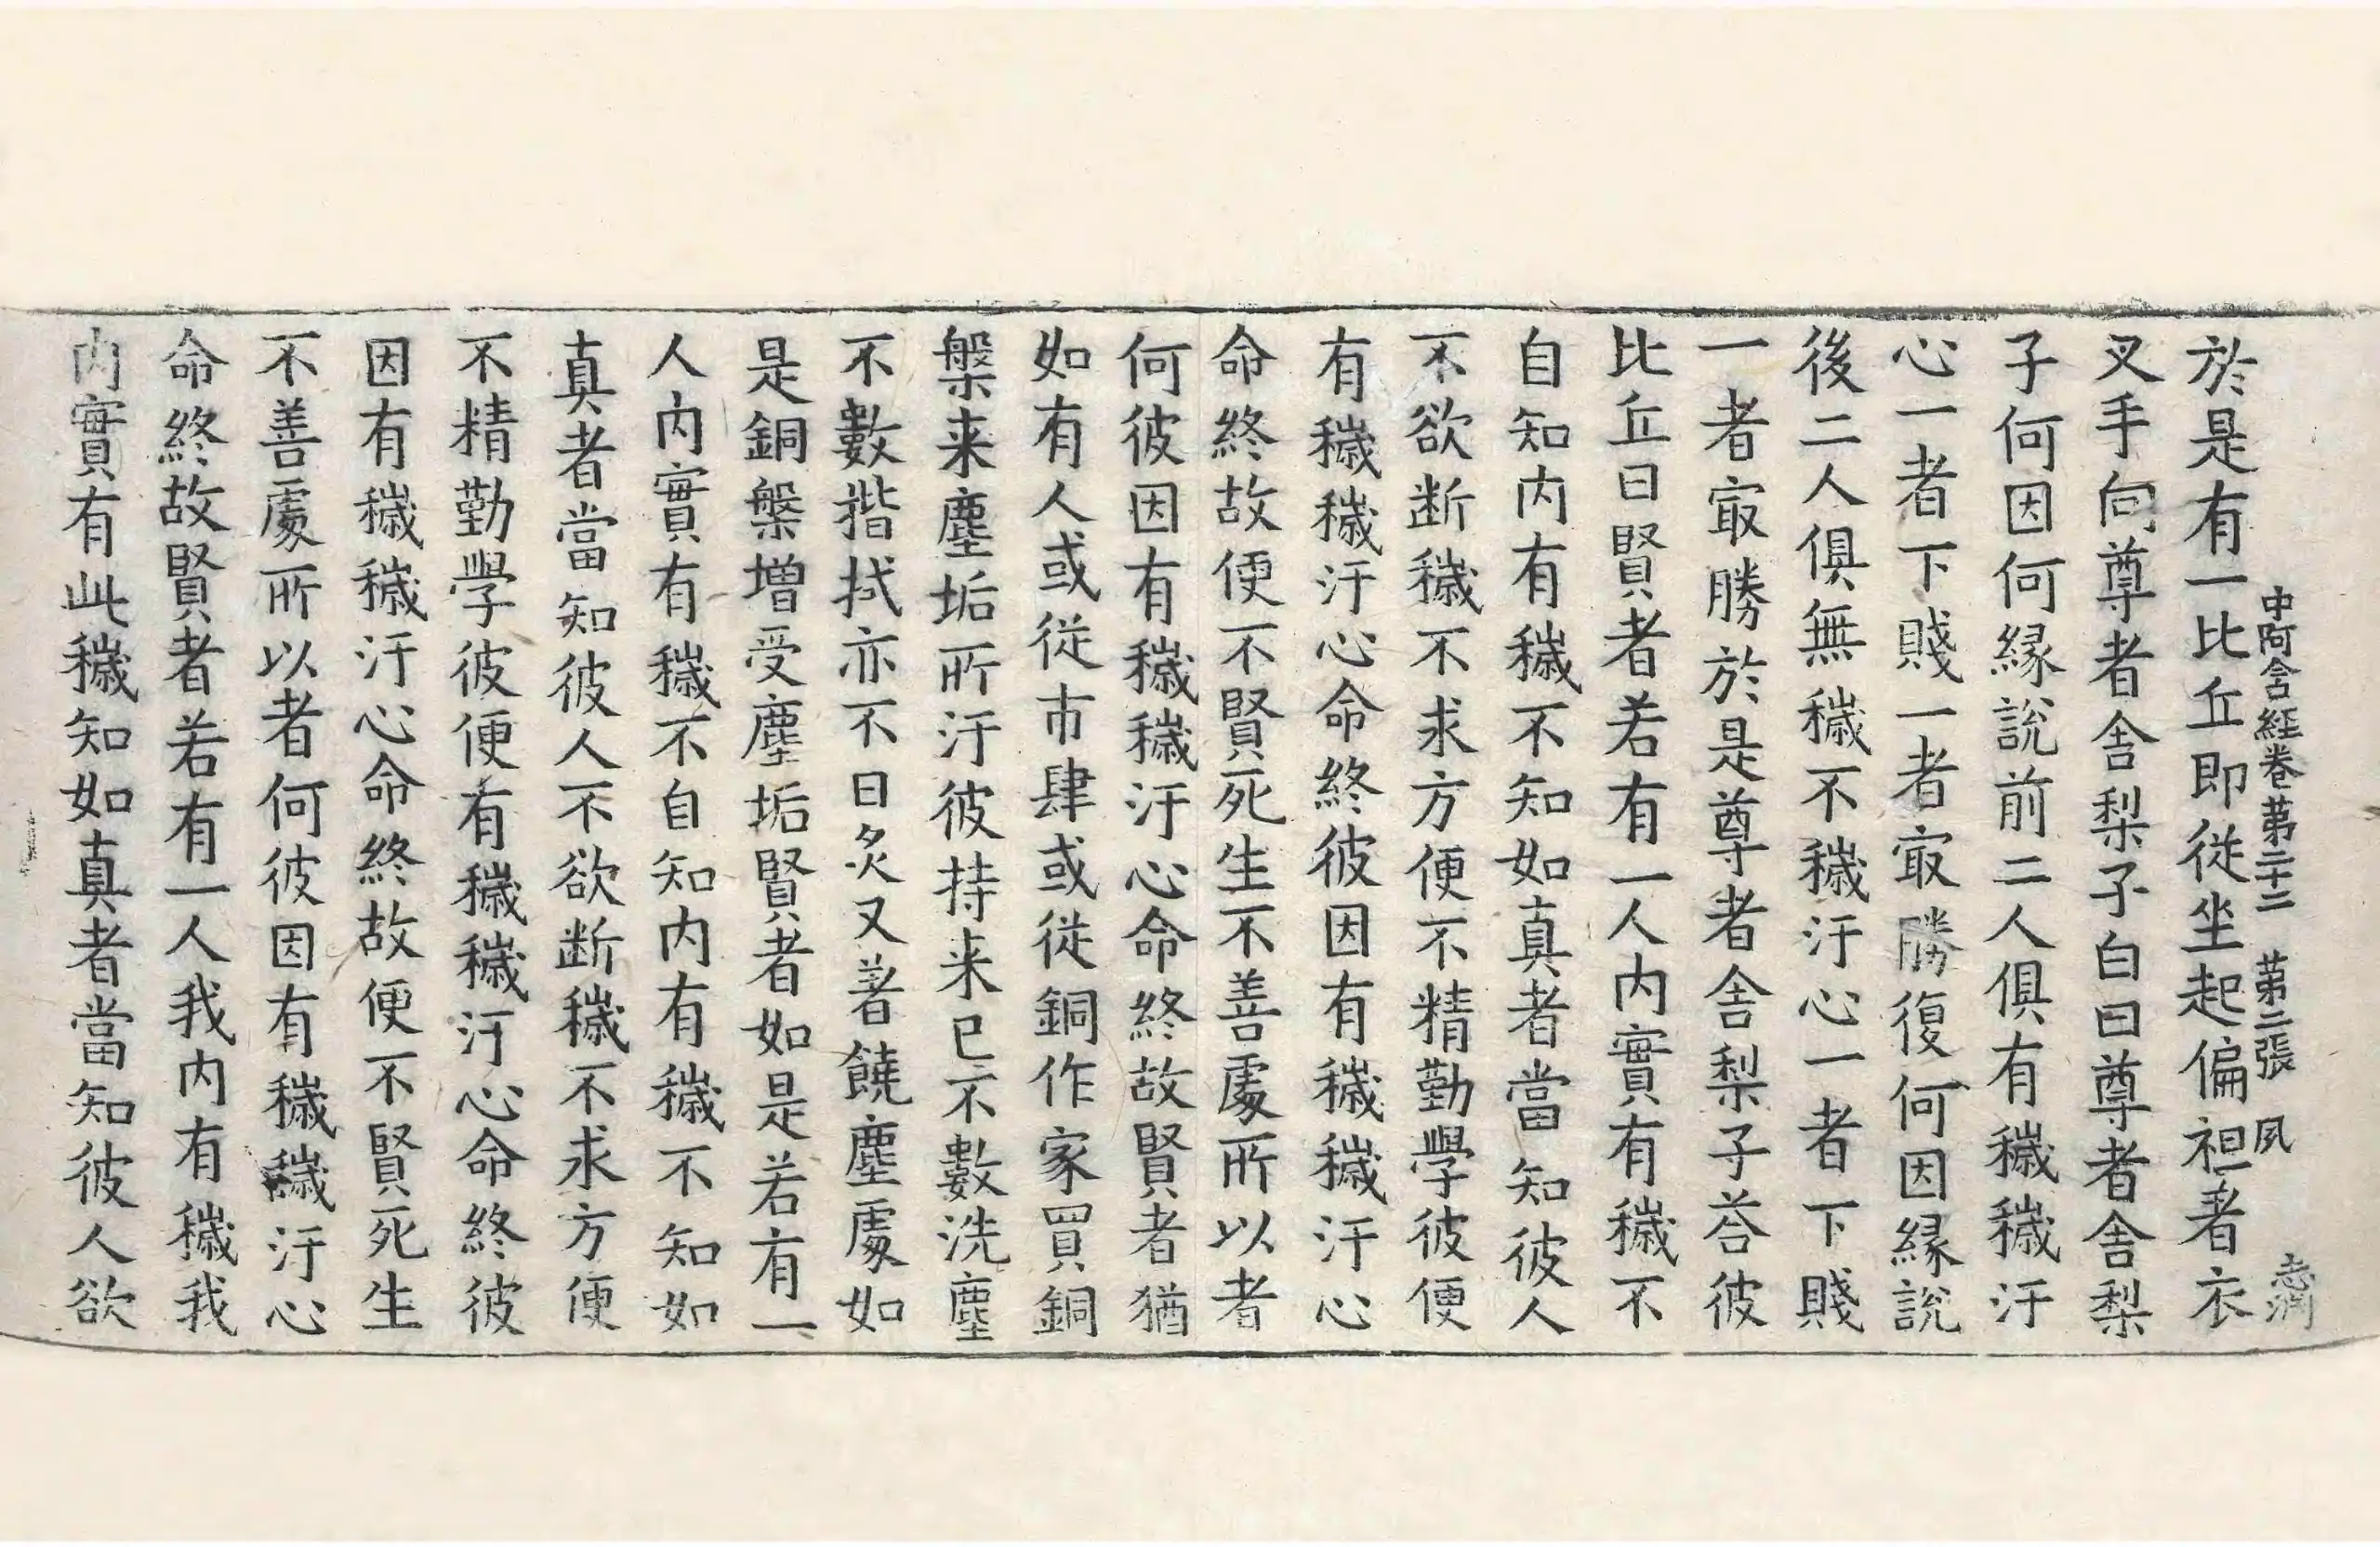 中阿含経卷苐二十二 苐二張 夙
於是有一比丘即從坐起偏袒著衣
叉手向尊者舎梨子白曰尊者舎梨
子何因何縁說前二人俱有穢穢汙
心一者下賤一者㝡勝復何因縁說
後二人俱無穢不穢汙心一者下賤
一者㝡勝於是尊者舎梨子荅彼
比丘曰賢者若有一人内實有穢不
自知内有穢不知如真者當知彼人
不欲断穢不求方便不精勤學彼便
有穢穢汙心命終彼因有穢穢汙心
命終故便不賢死生不善處所以者
何彼因有穢穢汙心命終故賢者猶
如有人或從市肆或從銅作家買銅
槃来塵垢所汙彼持来已不數洗塵
不數揩拭亦不日炙又著饒塵處如
是銅槃增受塵垢賢者如是若有一
人内實有穢不自知内有穢不知如
真者當知彼人不欲断穢不求方便
不精勤學彼便有穢穢汙心命終彼
因有穢穢汙心命終故便不賢死生
不善處所以者何彼因有穢穢汙心
命終故賢者若有一人我内有穢我
内實有此穢知如真者當知彼人欲